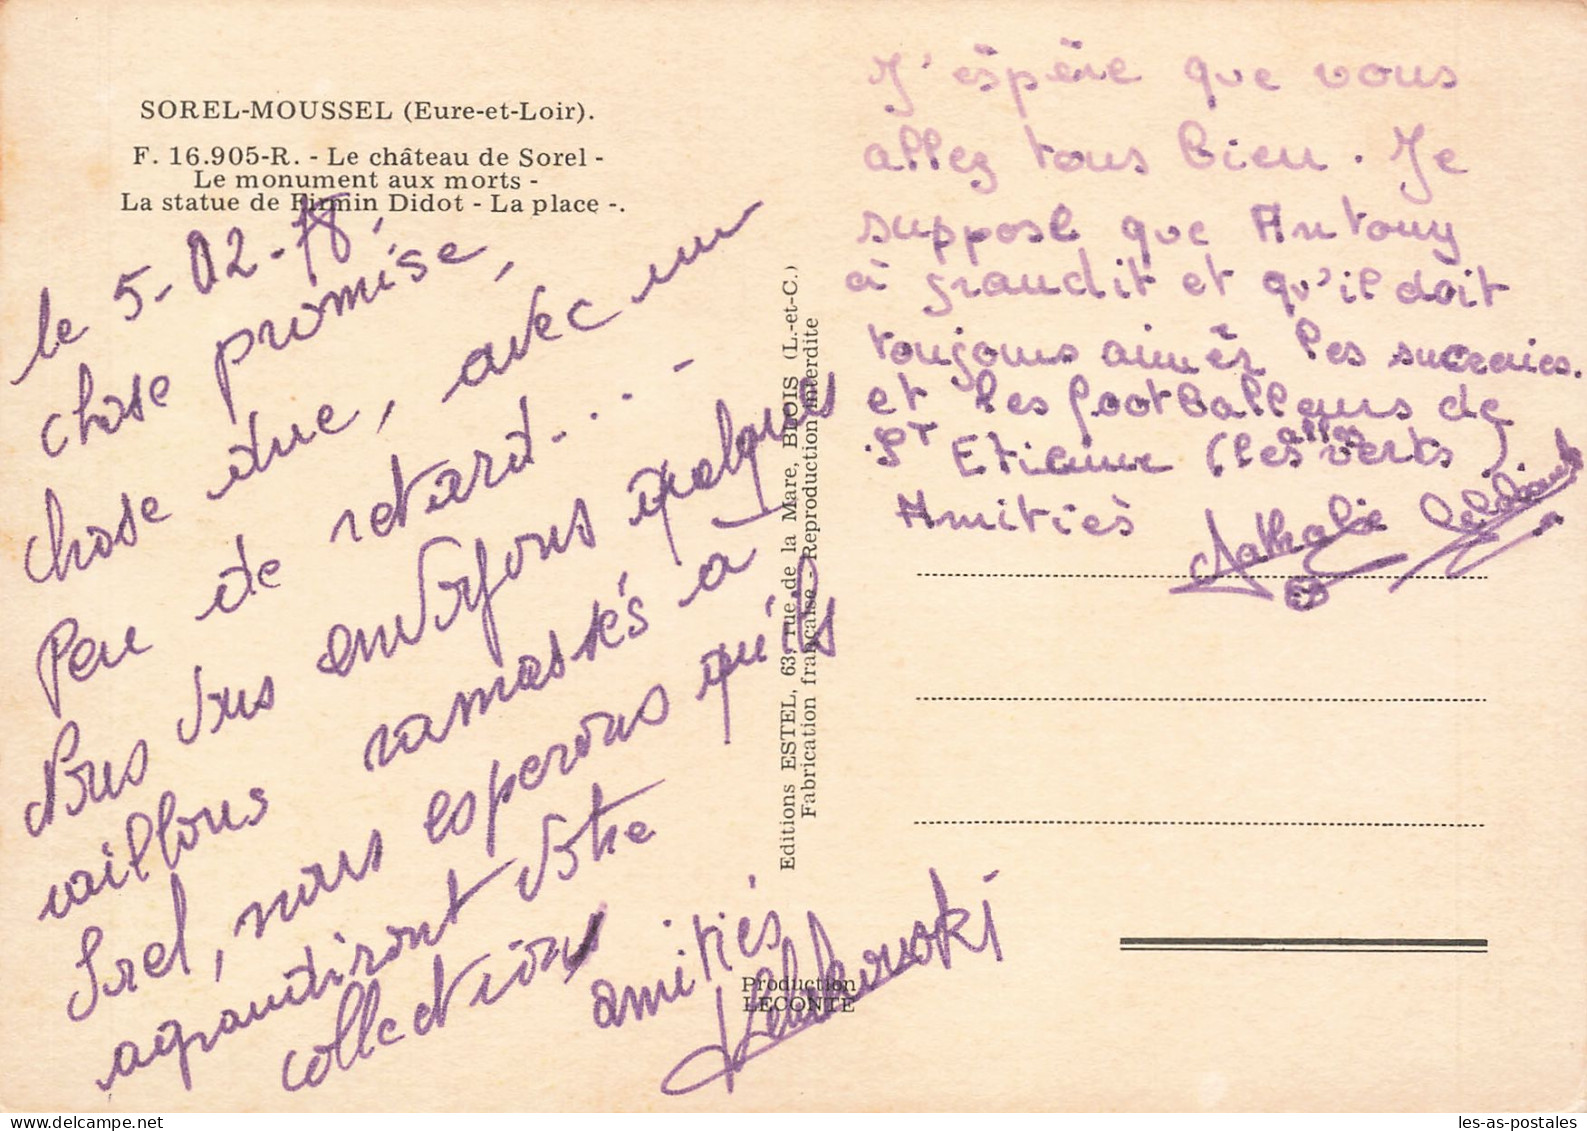 SOREL-MOUSSEL (Eure-et-Loir).
F. 16.905-R. - Le château de Sorel -
Le monument aux morts -
La statue de Firmin Didot - La place -.
le 5-02-78.
chose promise,
chose due, avec un
peu de retard... -
Nous vous envoyons quelques
cailloux ramassés à
Sorel, nous esperons qu'ils
agrandiront votre
collection
amitiés
Editions ESTEL, 63, rue de la Mare, BLOIS (L.-et-C.)
Fabrication française - Reproduction interdite
Production
LECONTE
J'éspére que vous
allez tous bien. Je
suppose que Antony
à grandit et qu'il doit
toujours aimér les sucreries.
et les footballeurs de
St Etienne (les verts)
allez
Amitiés Nathalie